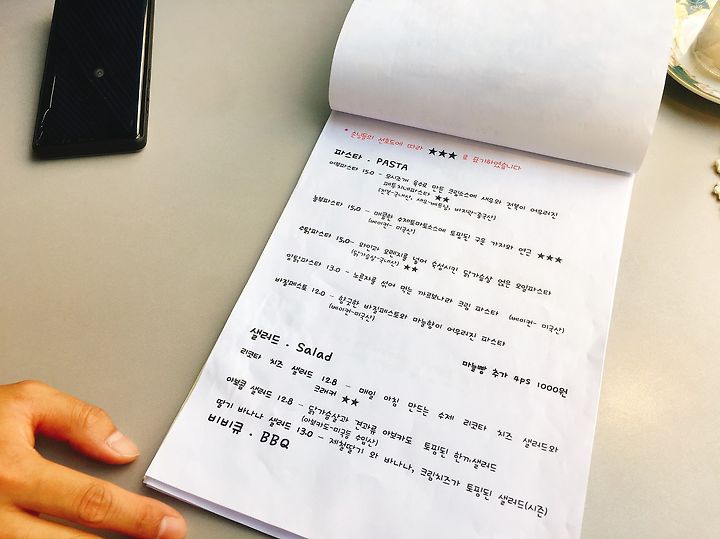 * 손님들의 선호도에 따라 ★★★ 로 표기하였습니다
파스타 · PASTA
어부파스타 15.0 - 모시조개 육수로 만든 크림소스에 새우와 전복이 어우러진
페투치네파스타 ★★
(전복-국내산, 새우-베트남, 바지락-중국산)
농부파스타 15.0 - 매콤한 수제토마토소스에 토핑된 구운 가지와 연근 ★★★
(베이컨- 미국산)
수탉파스타 15.0- 와인과 오렌지를 넣어 숙성시킨 닭가슴살 얹은 오일파스타
(닭가슴살-국내산) ★★
암탉파스타 13.0 - 노른자를 섞어 먹는 까르보나라 크림 파스타 (베이컨- 미국산)
바질페스토 12.0 - 향긋한 바질페스토와 마늘향이 어우러진 파스타
(베이컨-미국산)
마늘빵 추가 4ps 1000원
샐러드 · Salad
리코타 치즈 샐러드 12.8 - 매일 아침 만드는 수제 리코타 치즈 샐러드와
크래커 ★★
아보콥 샐러드 12.8 - 닭가슴살과 견과류 아보카도 토핑된 한끼샐러드
(아보카도-미국등 수입산)
딸기 바나나 샐러드 13.0 - 제철딸기 와 바나나, 크림치즈가 토핑된 샐러드(시즌)
비비큐 · BBQ